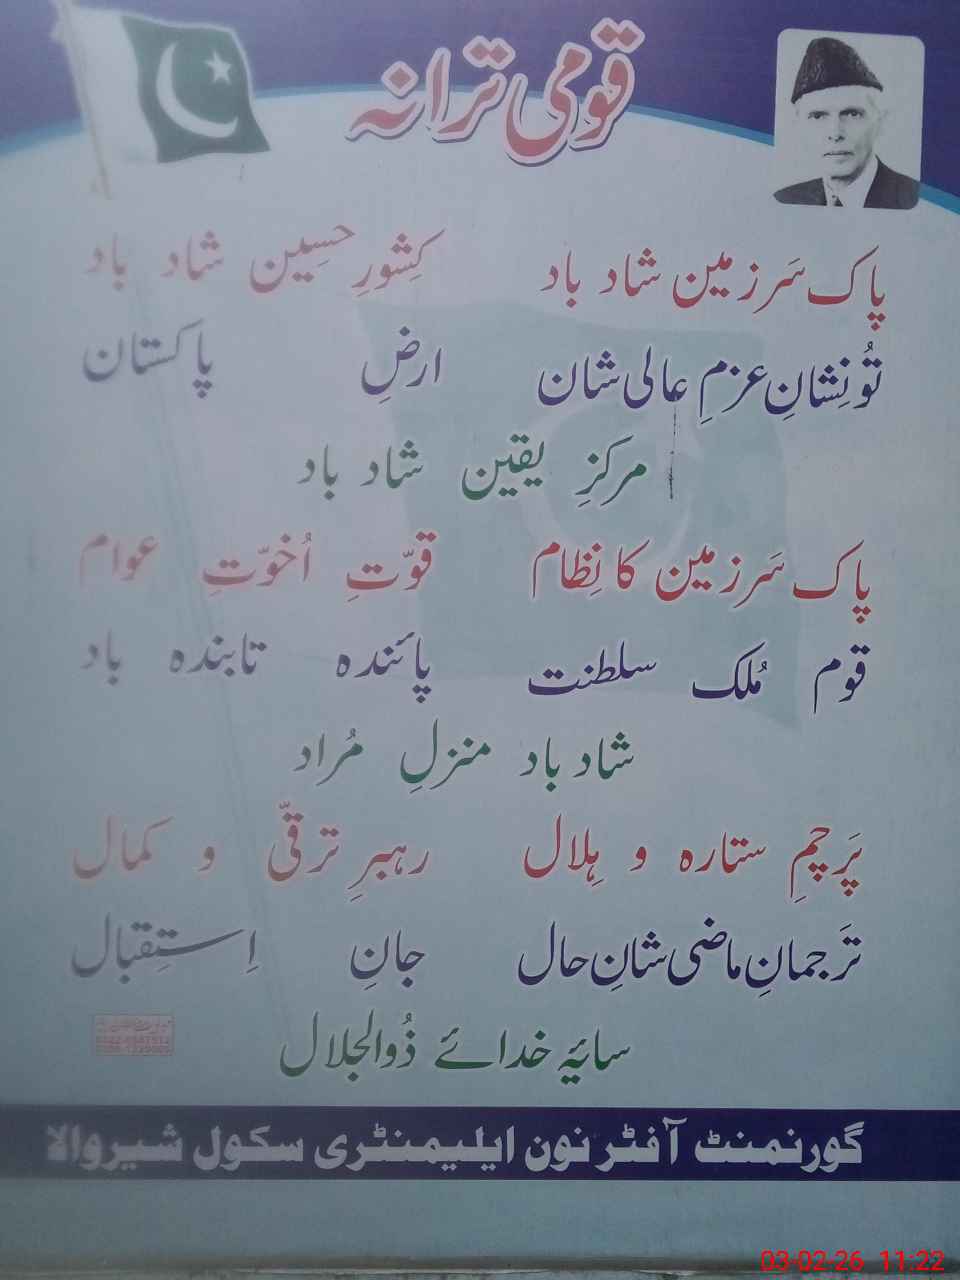 قومی ترانہ
پاک سَرزمین شاد باد کِشورِ حسِین شاد باد
تُو نِشانِ عزمِ عالی شان ارضِ پاکستان
مرکزِ یقین شاد باد
پاک سَرزمین کا نِظام قوّتِ اُخوّتِ عوام
قوم مُلک سلطنت پائندہ تابندہ باد
شاد باد منزلِ مُراد
پَرچمِ ستارہ و ہِلال رہبرِ ترقّی و کمال
تَرجمانِ ماضی شانِ حال جانِ اِستِقبال
سایۂ خدائے ذُوالجلال
گورنمنٹ آفٹر نون ایلیمنٹری سکول شیروالا
03-02-26 11:22